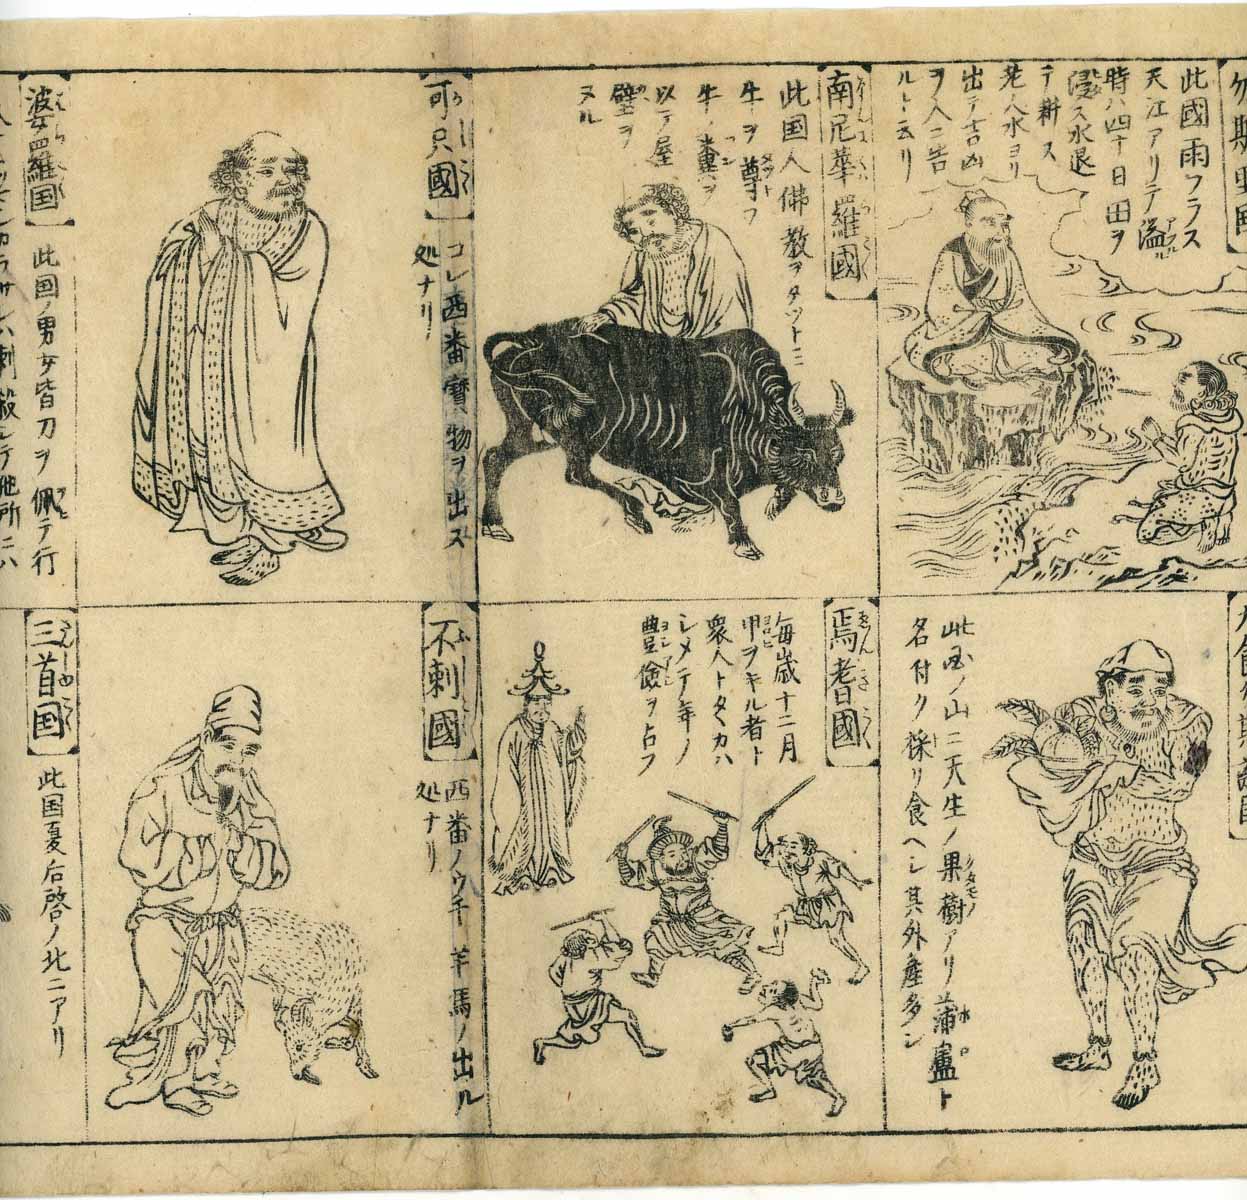 勿斯里国
此國雨フラス
天江アリテ溢ル
時八四十日田ヲ
浸ス水退
テ耕ス
老人水ヨリ
出テ吉凶
ヲ人ニ告
ルト云リ
南尼華羅國
此国人佛教ヲタツトミ
牛ヲ尊フ
牛ノ糞ヲ
以テ屋
壁ヲ
ヌル
可只國
コレ西番寳物ヲ出ス
処ナリ
婆羅国
此国ノ男女皆刀ヲ佩テ行
此国ノ山ニ天生ノ果樹アリ蒲蘆ト
名付ク採リ食ヘシ其外産多シ
焉耆國
毎歳十二月
甲ヲキル者ト
衆人トタヽカハ
シメテ年ノ
豊儉ヲ占フ
不剌國
西番ノウチ羊馬ノ出ル
処ナリ
三首国
此国夏后啓ノ北ニアリ